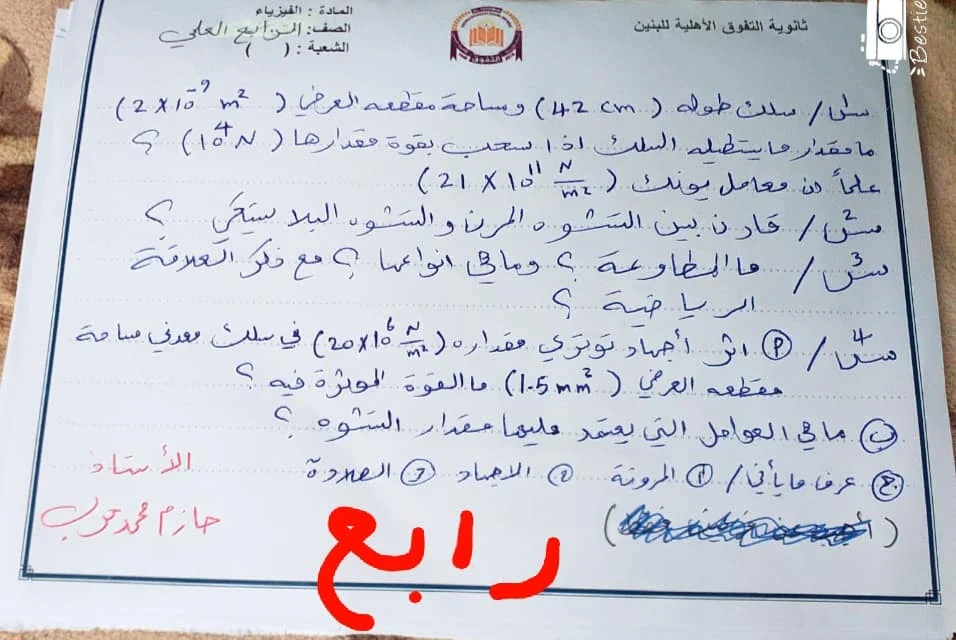 ثانوية التفوق الأهلية للبنين
المادة : الفيزياء
الصف: الرابع العلمي
الشعبة : ( )
التفوق
Bestie
س١/ سلك طوله (42 cm) ومساحة مقطعه العرضي (2 X 10⁻⁹ m²)
ما مقدار ما يستطيله السلك اذا سحب بقوة مقدارها (10⁴ N) ؟
علماً ان معامل يونك (21 X 10¹¹ N/m²)
س٢/ قارن بين التشوه المرن والتشوه البلاستيكي ؟
س٣/ ما المطاوعة ؟ وما هي انواعها ؟ مع ذكر العلاقة
الرياضية ؟
س٤/ (P) اثر أجهاد توتري مقداره (20X10⁶ N/m²) في سلك معدني مساحة
مقطعه العرضي (1.5 mm²) ما القوة الموثرة فيه ؟
(ب) ما هي العوامل التي يعتمد عليها مقدار التشوه ؟
(ج) عرف ما يأتي/ (1) المرونة (2) الاجهاد (3) الصلادة
الأستاذ
حازم محمد
رابع